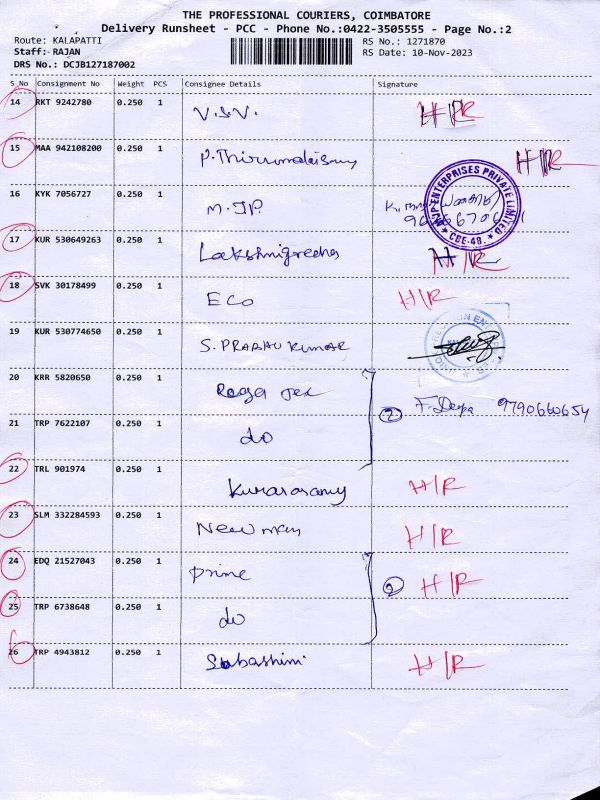 THE PROFESSIONAL COURIERS, COIMBATORE
Delivery Runsheet - PCC - Phone No.:0422-3505555 - Page No.:2
Route: KALAPATTI RS No.: 1271870
Staff: RAJAN RS Date: 10-Nov-2023
DRS No.: DCJB127187002
S_No Consignment No Weight PCS Consignee Details Signature
14 RKT 9242780 0.250 1 V.S.V. H/R
15 MAA 942108200 0.250 1 P.Thirumalaisamy H/R
16 KYK 7056727 0.250 1 M.JP. ENTERPRISES PRIVATE LIMITED * CBE-48. *
17 KUR 530649263 0.250 1 Lakshmigreens H/R
18 SVK 30178499 0.250 1 ECO H/R
19 KUR 530774650 0.250 1 S. PRABAU KUMAR
20 KRR 5820650 0.250 1 Raga Tex
② F. Deepa 9790660654
21 TRP 7622107 0.250 1 do
22 TRL 901974 0.250 1 Kumarasamy H/R
23 SLM 332284593 0.250 1 New man H/R
24 EDQ 21527043 0.250 1 prime ② H/R
25 TRP 6738648 0.250 1 do
26 TRP 4943812 0.250 1 Subashini H/R